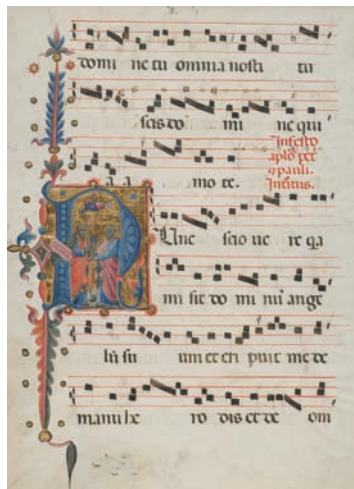 domi ne tu omnia nosti tu
scis do mi ne qui
a a mo te.
In festo
aplo pet
pauli.
NUnc scio ue re qa
mi sit do mi nus ange
lū su um et eri puit me de
manu he ro dis et de om